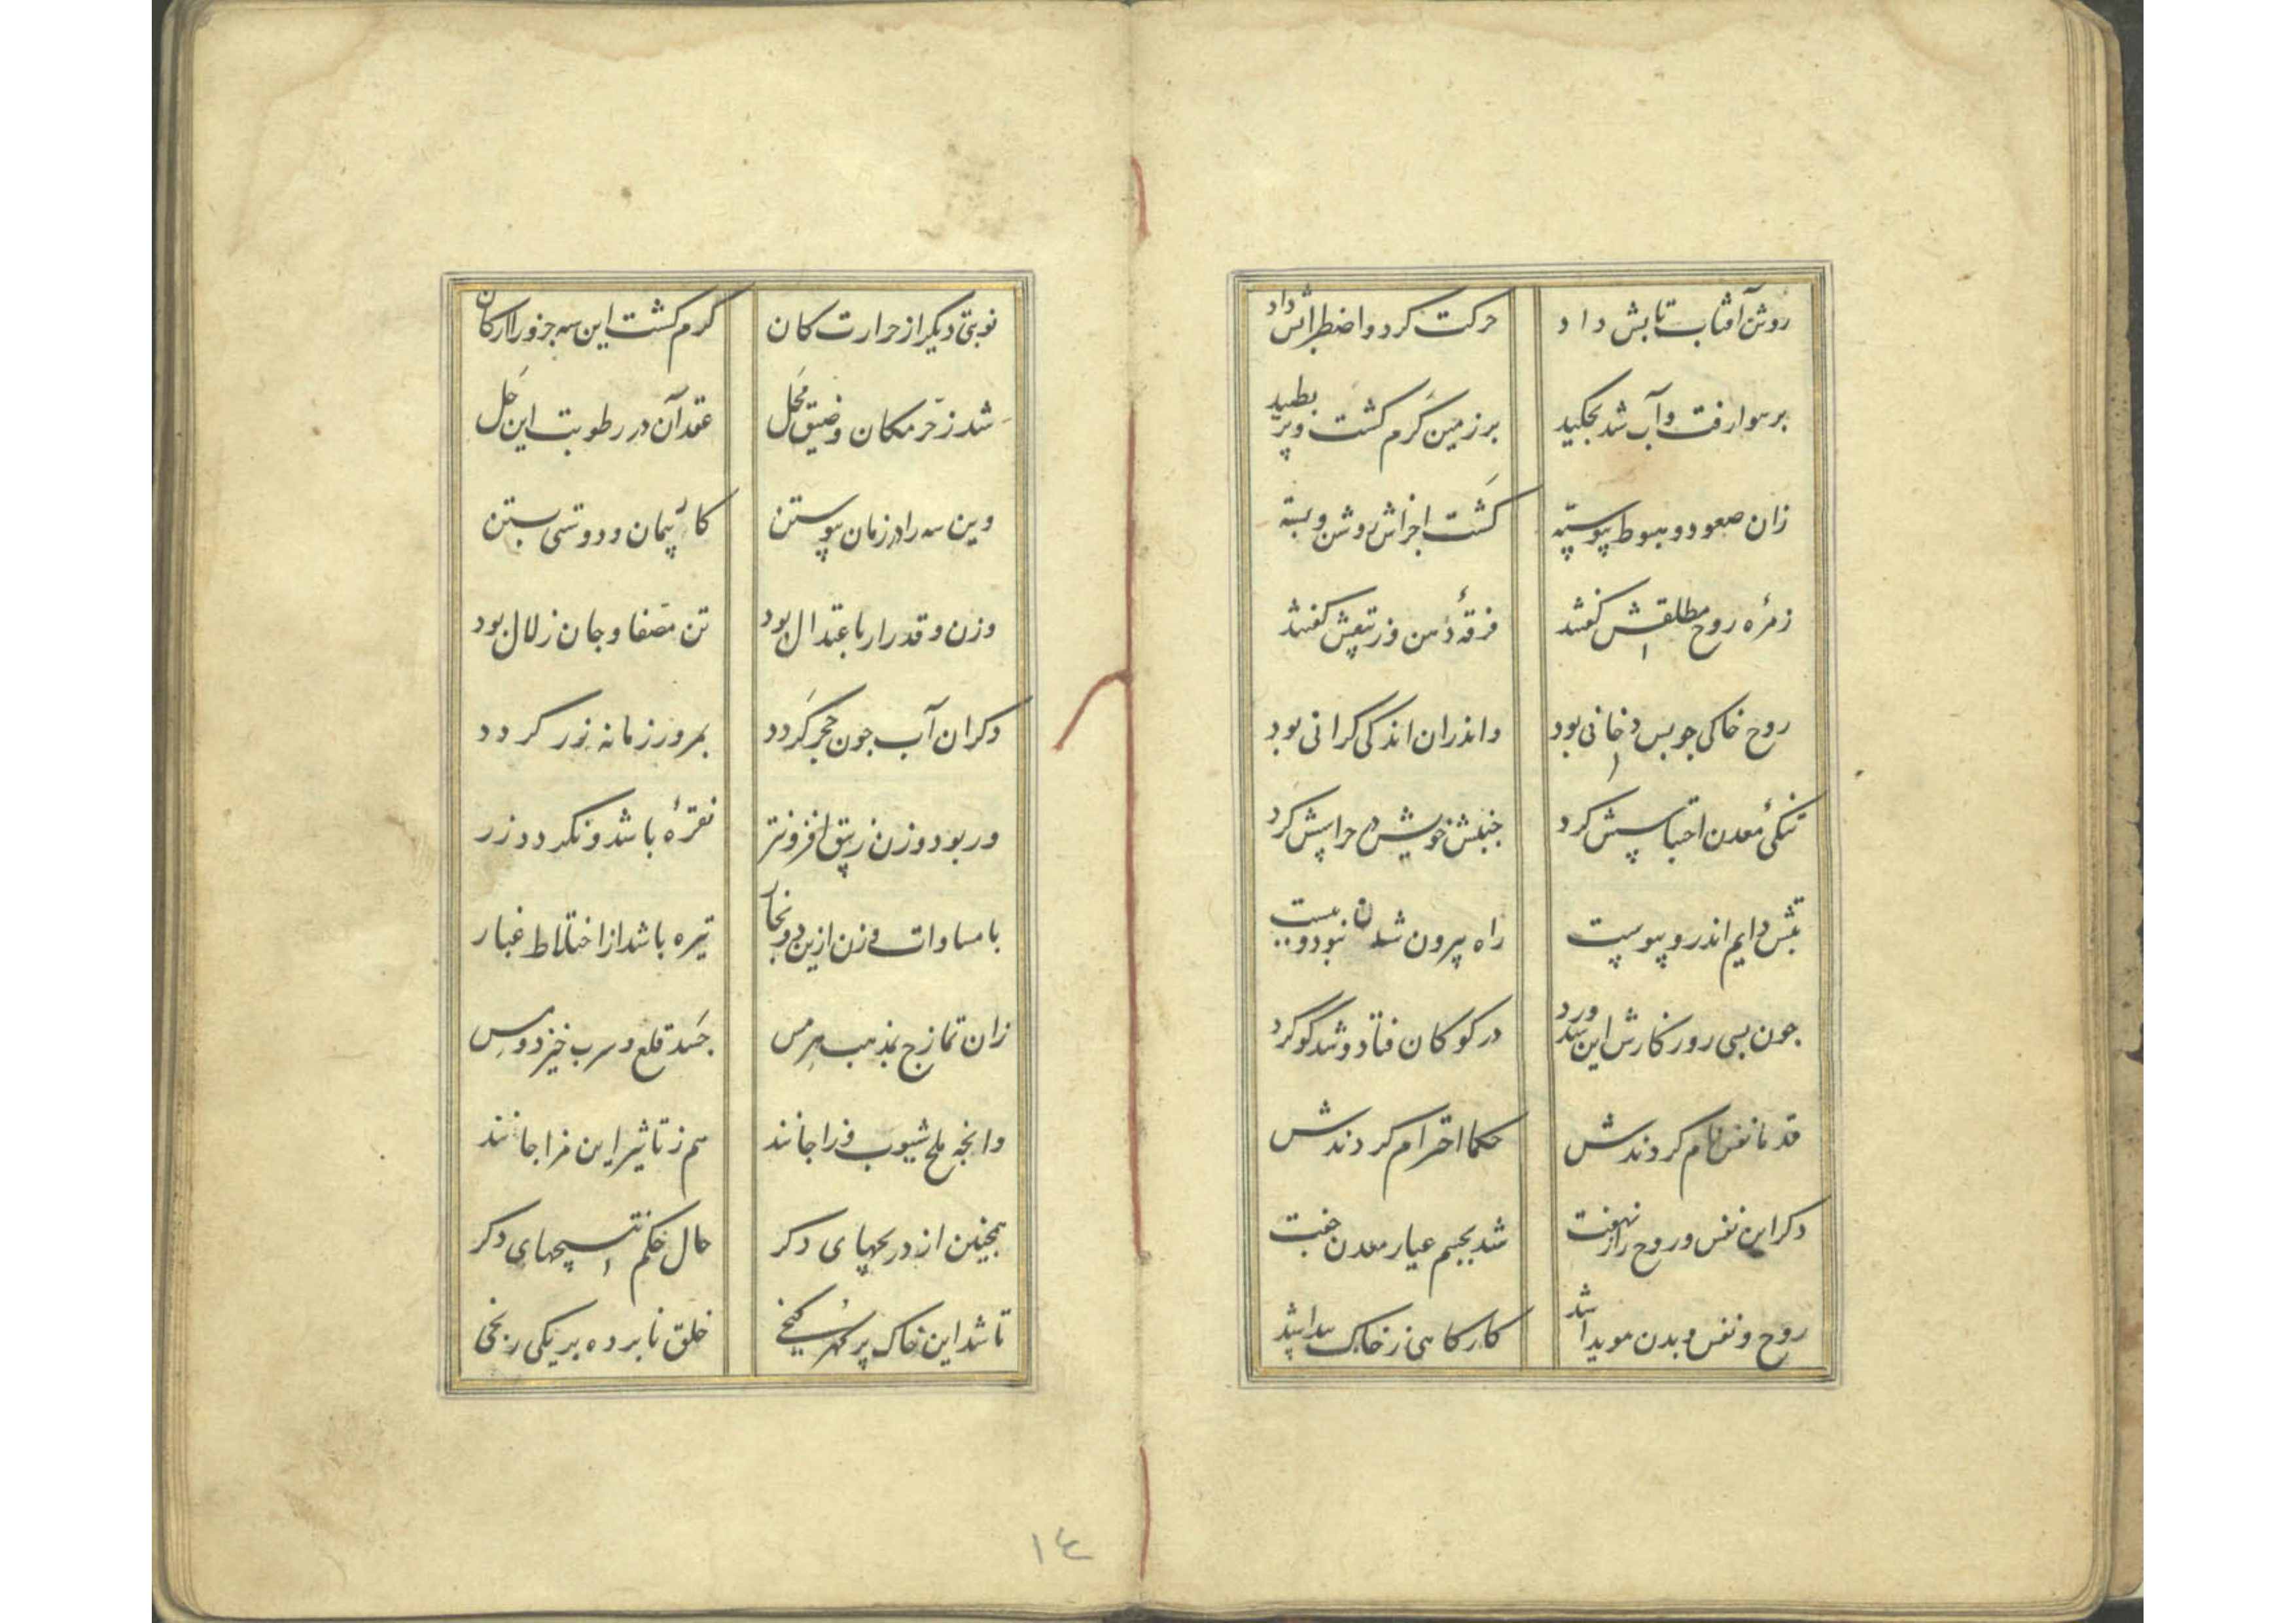 روشن آفتاب تابش داد حرکت کرد و اضطرابش داد
بر هوا رفت و آب شد بچکید بر زمین گرم گشت و بر بطپید
زان صعود و هبوط پیوسته گشت اجزاش روشن و بسته
زمرهٔ روح مطلقش گفتند فرقهٔ دهن و زیبقش گفتند
روح خاکی جو بس دخانی بود واندران اندکی گرانی بود
تنکی معدن احتباسش کرد جنبش خویش در حراسش کرد
تبش دایم اندرو پیوست راه بیرون شدن نبود و ببست
جون بسی روزگارش این شد ورد در کو کان فتاد و شد گوگرد
قدما نفس نام کردندش حکما احترام کردندش
دکر این نفس و روح راز نهفت شد بجسم عیار معدن جفت
روح و نفس و بدن موید شد کارکاهی ز خاک پیدا شد
نوبتی دیگر از حرارت کان گرم گشت این سه جزو را ارکان
شد ز حر مکان و ضیق محل عقد آن در رطوبت این حل
وین سه را در زمان پیوستن کار پیمان و دوستی بستن
وزن و قدر ار باعتدال بود تن مصفا و جان زلال بود
دکر ان آب جون حجر گردد بمرور زمانه زر گردد
ور بود وزن زیبق افزونتر نقرهٔ باشد و نگردد زر
با مساوات وزن ازین دو بخار تیره باشد از اختلاط غبار
زان تمازج بمذهب هرمس جسد قلع و سرب خیزد و مس
وانجه ملح و شیوب و زاجانند هم ز تاثیر این مزاجانند
همجنین از دریجهای دکر حال حکم نتیجهای دکر
تا شد این خاک پر گهر گنجی خلق نابرده بر یکی رنجی
۱٤